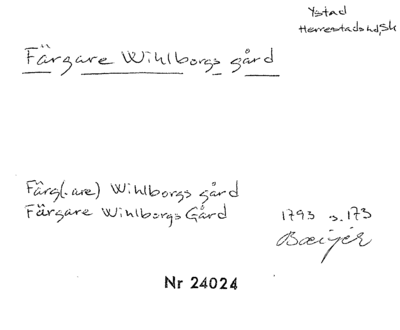 Ystad
Herrestads hd, Sk
Färgare Wihlborgs gård
Färg(-are) Wihlborgs gård
Färgare Wihlborgs Gård 1793 s. 173
Bœijér
Nr 24024